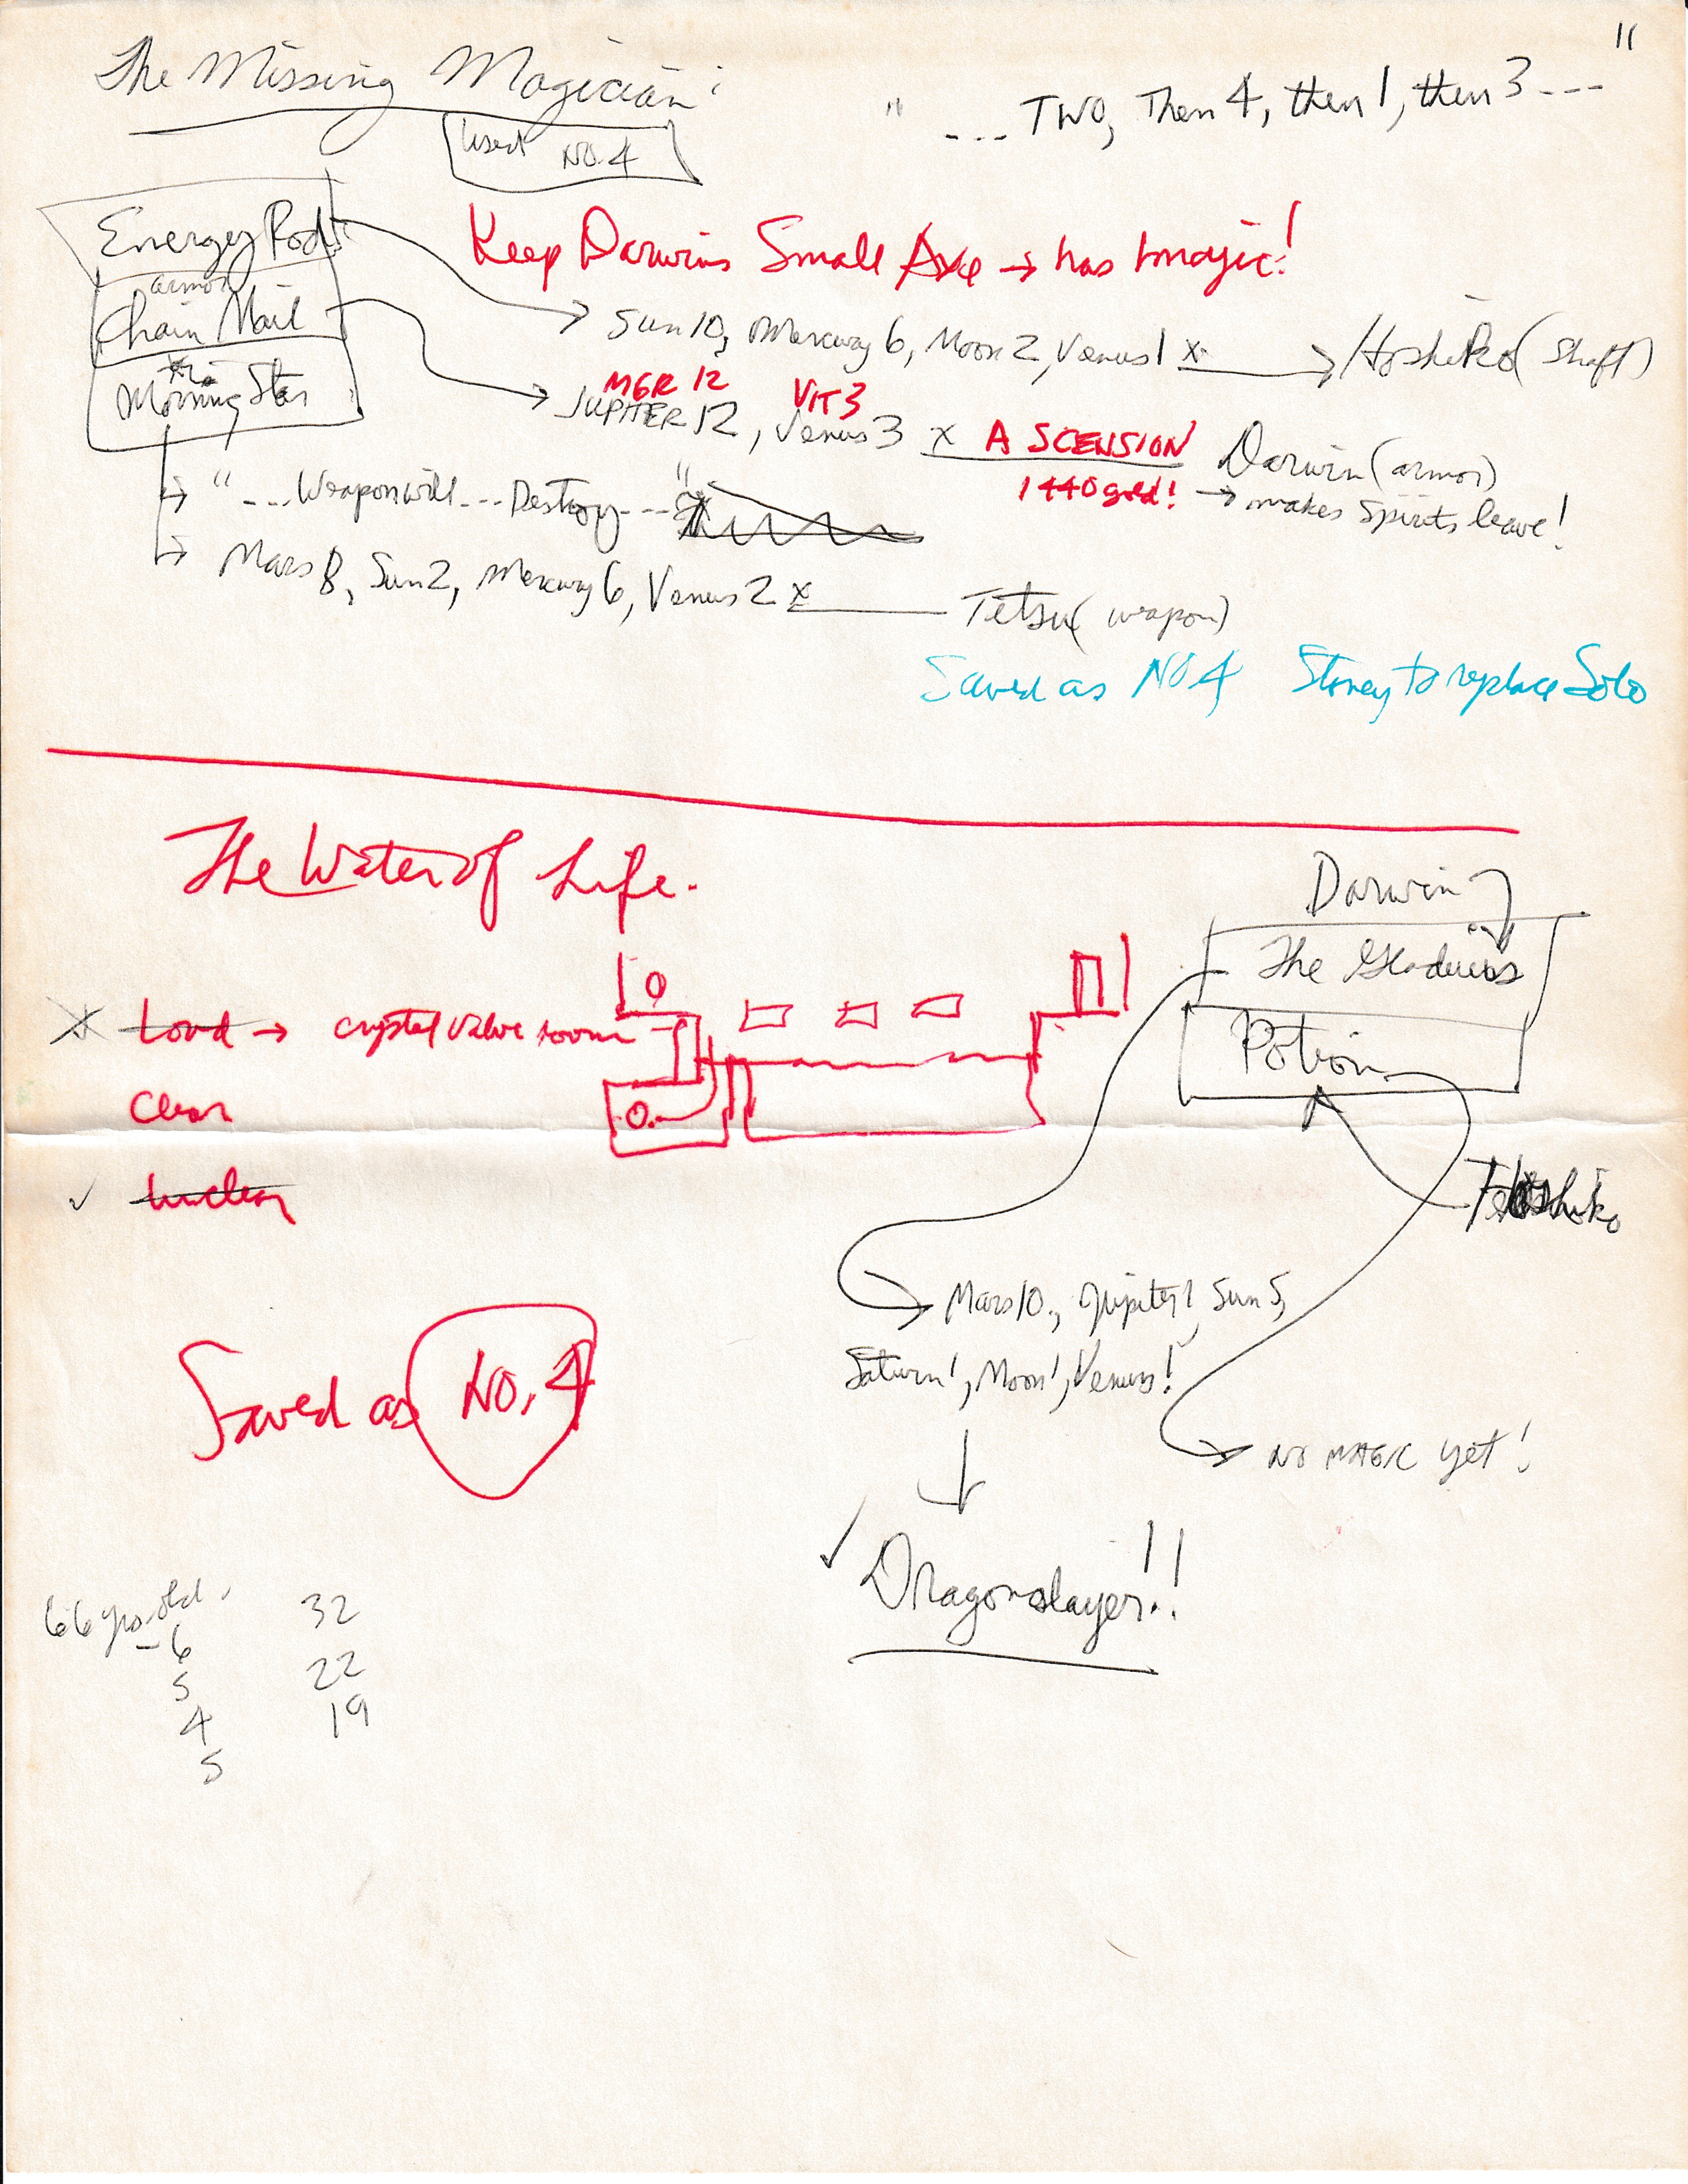 The Missing Magician:
" --- TWO, Then 4, then 1, then 3 --- "
Used NO. 4
Energy Rod
armor
Chain Mail
Morning Star
Keep Darwins Small Axe → has magic!
Sun 10, Mercury 6, Moon 2, Venus 1 x → Hoshiko (shaft)
MGR 12 VIT 3
JUPITER 12, Venus 3 x ASCENSION Darwin (armor)
1440 gold! → makes spirits leave!
" --- Weapon will --- Destroy --- "
Mars 8, Sun 2, Mercury 6, Venus 2 x Tetsu (weapon)
Saved as NO 4 Stoney to replace Solo
The Water of Life.
Darwin
The Gladius
Potion
Loud → crystal valve room
Clear
unclear
Hoshiko
Mars 10, Jupiter 1, Sun 5,
Saturn 1, Moon 1, Venus 1
Saved as NO. 4
NO MAGIC yet!
Dragonslayer!!
66 yrs. old.
-6 32
5 22
4 19
5